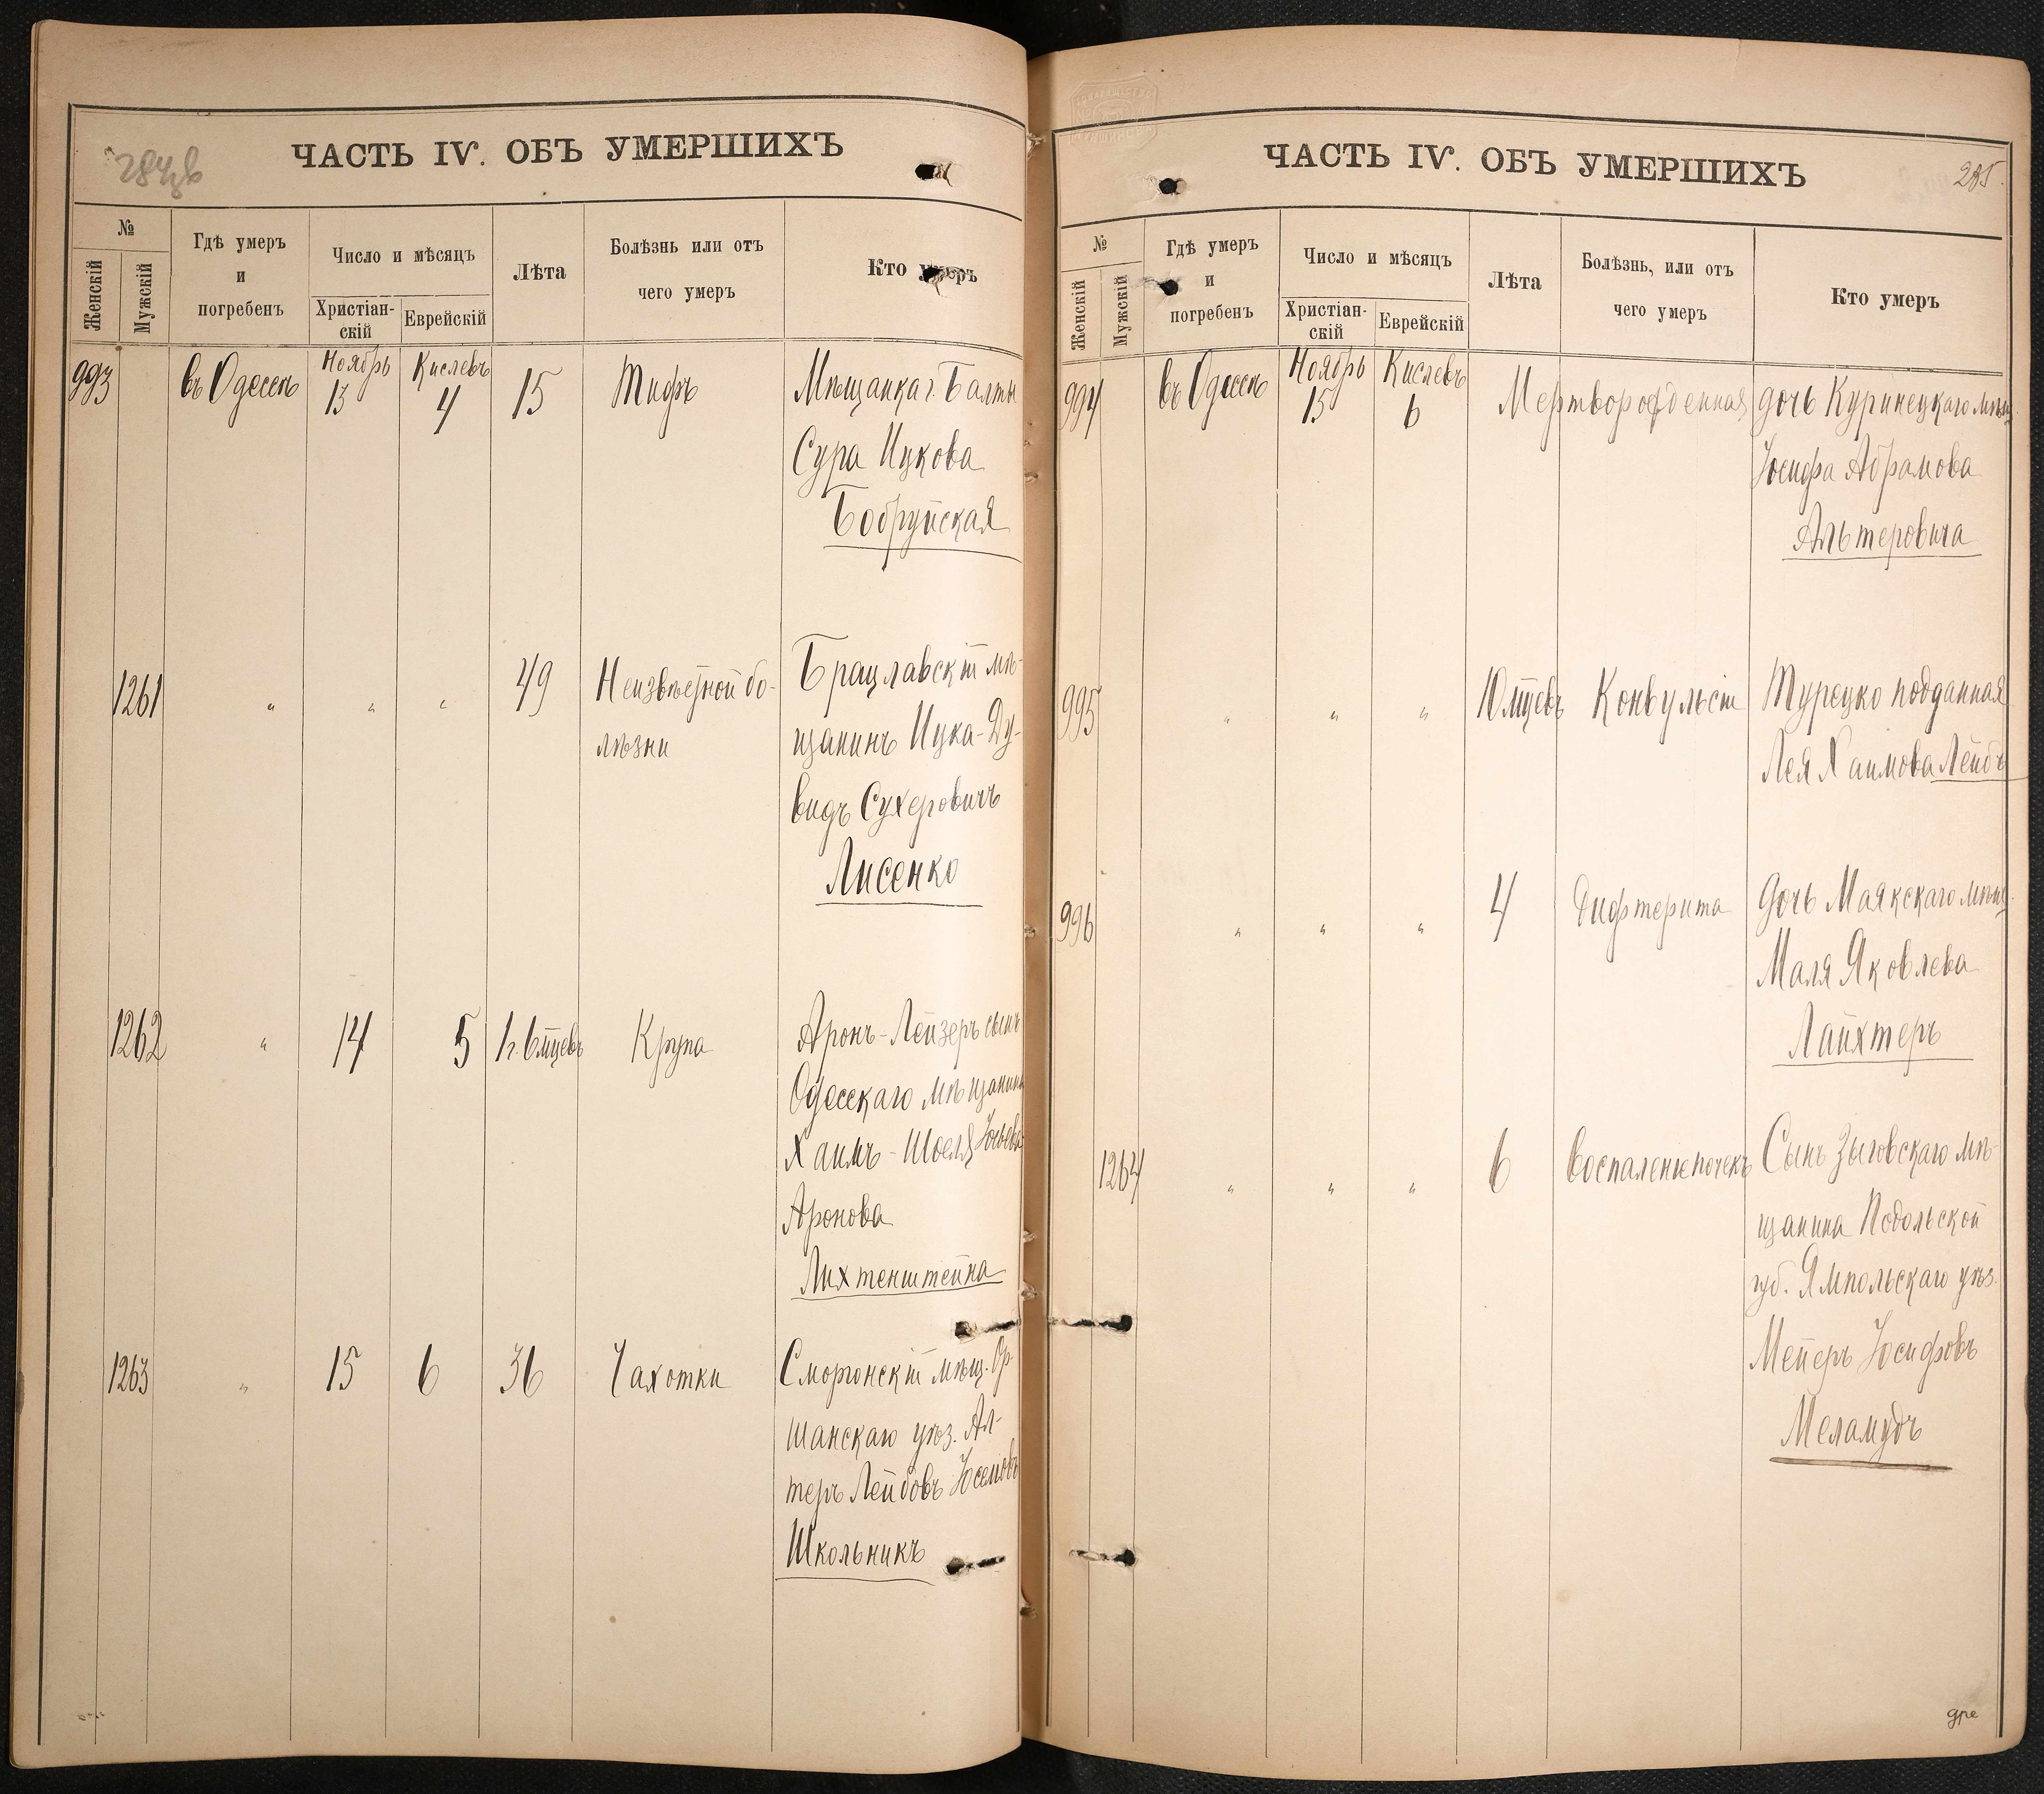 284об
ЧАСТЬ IV. ОБЪ УМЕРШИХЪ
№
Женскій
Мужскій
Гдѣ умеръ
и
погребенъ
Число и мѣсяцъ
Христіан-
скій
Еврейскій
Лѣта
Болѣзнь или отъ
чего умеръ
Кто умеръ
993 въ Одессѣ Ноябрь 13 Кислевъ 4 15 Тифъ Мѣщанка г. Балты
Сура Ицкова
Бобруйская
1261 " " " 49 Неизвѣстной бо-
лѣзни
Брацлавскій мѣ-
щанинъ Ицка-Ду-
видъ Сухеровичъ
Лисенко
1262 " 14 5 1 г. 6 мцевъ Крупа Аронъ-Лейзеръ сынъ
Одесскаго мѣщанина
Хаимъ-Шоеля
Аронова
Лихтенштейна
1263 " 15 6 36 Чахотки Сморгонскій мѣщ. Ор-
шанскаго уѣз. Ал-
теръ Лейбовъ
Школьникъ
ЧАСТЬ IV. ОБЪ УМЕРШИХЪ
285.
№
Женскій
Мужскій
Гдѣ умеръ
и
погребенъ
Число и мѣсяцъ
Христіан-
скій
Еврейскій
Лѣта
Болѣзнь, или отъ
чего умеръ
Кто умеръ
994 въ Одессѣ Ноябрь 15 Кислевъ 6 Мертворожденная дочь Куринецкаго мѣщ.
Іосифа Абрамова
Альтеровича
995 " " " 10 мцевъ Конвульсіи Турецко подданная
Лея Хаимова Лейбъ
996 " " " 4 Дифтерита дочь Маякскаго мѣщ.
Маля Яковлева
Лайхтеръ
1264 " " " 6 Воспаленіе почекъ Сынъ Зыговскаго мѣ-
щанина Подольской
губ. Ямпольскаго уѣз.
Мейеръ Іосифовъ
Меламудъ